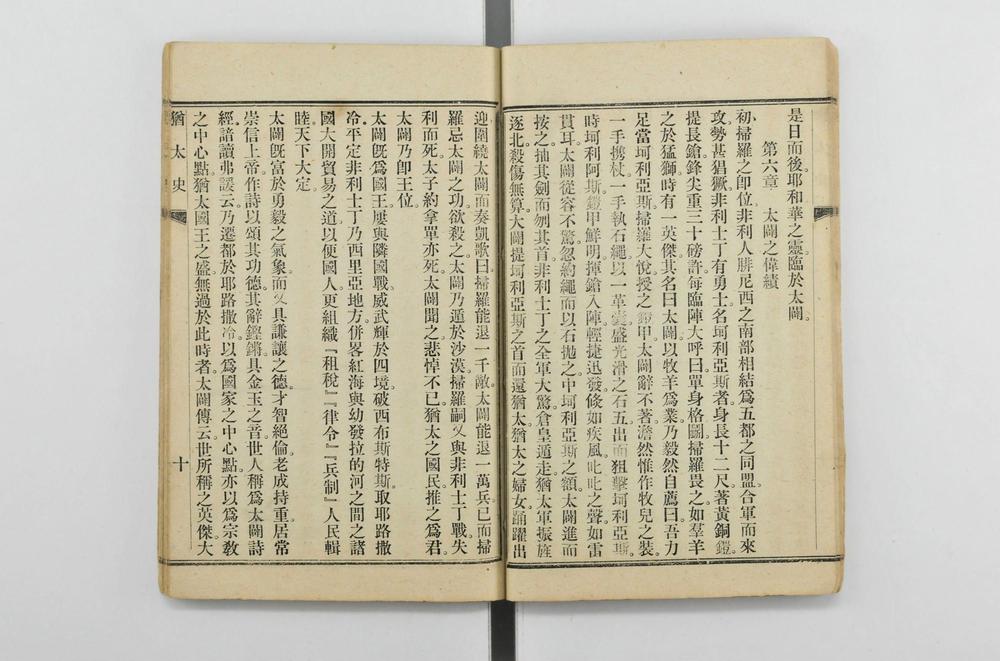 是日而後耶和華之靈臨於太闢。
第六章　太闢之偉績
初、掃羅之卽位非利人腓尼西之南部相結爲五都之同盟合軍而來
攻勢甚猖獗非利士丁有勇士名坷利亞斯者身長十二尺著黃銅鎧。
提長鎗鋒尖重三十磅許每臨陣大呼曰單身格鬭掃羅畏之如羣羊
之於猛獅時有一英傑其名曰太闢以牧羊爲業乃毅然自薦曰吾力
足當坷利亞斯掃羅大悅授之鎧甲太闢辭不著澹然惟作牧兒之裝
一手携杖一手執石繩以一革囊盛光滑之石五出而狙擊坷利亞斯。
時坷利阿斯鎧甲鮮明揮鎗入陣輕捷迅發倏如疾風叱叱之聲如雷
貫耳太闢從容不驚忽約繩而以石拋之中坷利亞斯之額太闢進而
按之抽其劍而刎其首非利士丁之全軍大驚倉皇遁走猶太軍振旅
逐北殺傷無算大闢提坷利亞斯之首而還猶太猶太之婦女踊躍出
迎圍繞太闢而奏凱歌曰掃羅能退一千敵太闢能退一萬兵已而掃
羅忌太闢之功欲殺之太闢乃遁於沙漠掃羅嗣又與非利士丁戰失
利而死太子約拿單亦死太闢聞之悲悼不已猶太之國民推之爲君。
太闢乃卽王位
太闢旣爲國王屢與隣國戰威武輝於四境破西布斯特斯取耶路撒
冷平定非利士丁乃西里亞地方併畧紅海與幼發拉的河之間之諸
國大開貿易之道以便國人更組織『租稅』『律令』『兵制』人民輯
睦天下大定。
太闢旣富於勇毅之氣象而又具謙讓之德才智絕倫老成持重居常
崇信上帝作詩以頌其功德其辭鏗鏘具金玉之音世人稱爲太闢詩
經諳讀弗諼云乃遷都於耶路撒冷以爲國家之中心點亦以爲宗敎
之中心點猶太國王之盛無過於此時者太闢傳云世所稱之英傑大
猶太史
十